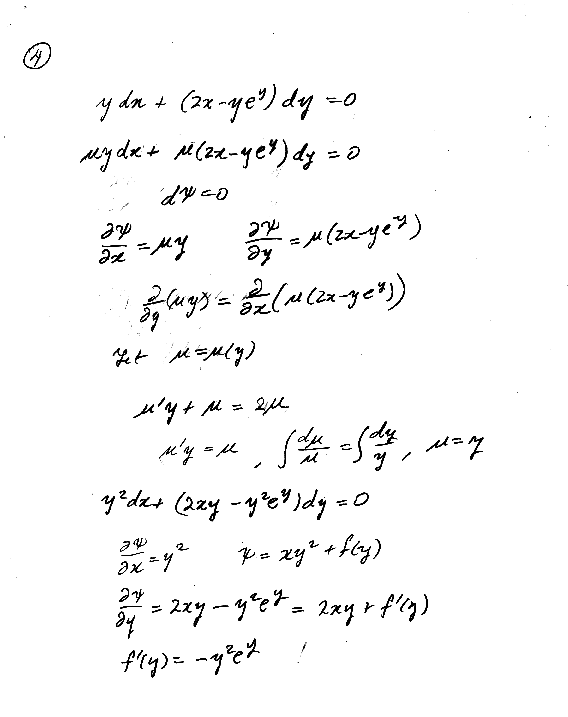 ④
y dx + (2x - ye^y) dy = 0
μy dx + μ(2x - ye^y) dy = 0
dψ = 0
∂ψ/∂x = μy   ∂ψ/∂y = μ(2x - ye^y)
∂/∂y (μy) = ∂/∂x (μ(2x - ye^y))
Let μ = μ(y)
μ'y + μ = 2μ
μ'y = μ , ∫ dμ/μ = ∫ dy/y , μ = y
y²dx + (2xy - y²e^y)dy = 0
∂ψ/∂x = y²   ψ = xy² + f(y)
∂ψ/∂y = 2xy - y²e^y = 2xy + f'(y)
f'(y) = -y²e^y